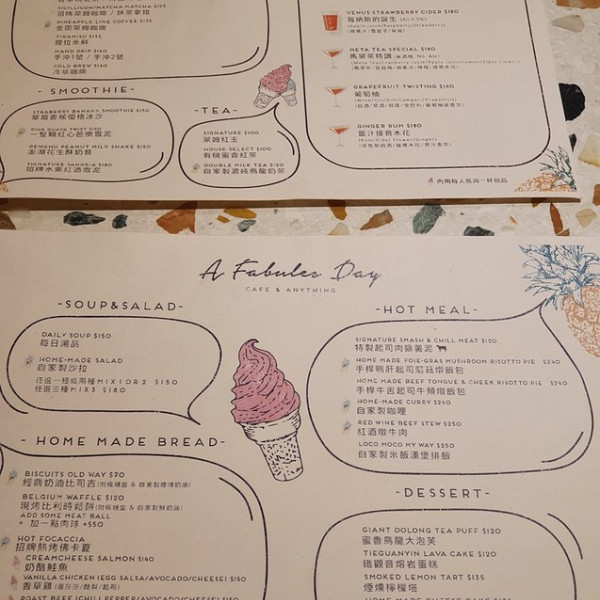 SICILICCON/MATCHA MATCHA $155
招牌萊姆咖啡 / 抹茶拿鐵
PINEAPPLE LIME COFFEE $135
金原萊姆咖啡
TIRAMISU $135
提拉米蘇
HAND DRIP $180
手沖1號 / 手沖2號
COLD BREW $180
冷萃咖啡
- SMOOTHIE -
STRABERRY BANANA SMOOTHIE $150
草莓香蕉優格冰沙
PINK GUAVA TWIST $150
一整顆紅心芭樂雪泥
PENGHU PEANUT MILK SHAKE $150
澎湖花生酥奶昔
SIGNATURE SANGRIA $180
招牌水果紅酒雪泥
- TEA -
SIGNATURE $100
萊姆紅玉
HOUSE SELECT $100
有機蜜香紅茶
DOUBLE MILK TEA $120
自家製濃純烏龍奶茶
VENUS STRAWBERRY CIDER $180
維納斯的誕生
META TEA SPECIAL $180
馬萊茶特調
GRAPEFRUIT TWISTING $180
葡萄柚
GINGER RUM $180
薑汁接骨木花
內用每人低消一杯飲品
A Fabules Day
CAFE & ANYTHING
-SOUP&SALAD-
DAILY SOUP $150
每日湯品
HOME-MADE SALAD
自家製沙拉
任選一種或兩種MIX1OR2 $150
任選三種MIX3 $180
- HOME MADE BREAD-
BISCUITS OLD WAY $70
經典奶油比司吉(附楓糖漿 & 自家製蜂蜜奶油)
BELGIUM WAFFLE $120
現烤比利時鬆餅(附楓糖漿 & 自家製鮮奶油)
ADD SOME MEAT BALL
+ 加一點肉球 +$50
HOT FOCACCIA
招牌熱烤佛卡夏
CREAMCHEESE SALMON $140
奶酪鮭魚
VANILLA CHICKEN (EGG SALSA/AVOCADO/CHEESE) $150
香草雞
ROAST BEEF (CHILI PEPPER/AVOCADO/CHEESE)
-HOT MEAL-
SIGNATURE SMASH & CHILL MEAT $150
特製起司肉醬薯泥
HOME MADE FOIE-GRAS MUSHROOM RISOTTO PIE $240
手桿鴨肝起司蘑菇燉飯包
HOME MADE BEEF TONGUE & CHEEK RISOTTO PIE $240
手桿牛舌起司牛頰燉飯包
HOME-MADE CURRY $240
自家製咖哩
RED WINE BEEF STEW $250
紅酒燉牛肉
LOCO MOCO MY WAY $250
自家製米飯漢堡排飯
-DESSERT-
GIANT OOLONG TEA PUFF $120
蜜香烏龍大泡芙
TIEGUANYIN LAVA CAKE $120
鐵觀音熔岩蛋糕
SMOKED LEMON TART $135
煙燻檸檬塔